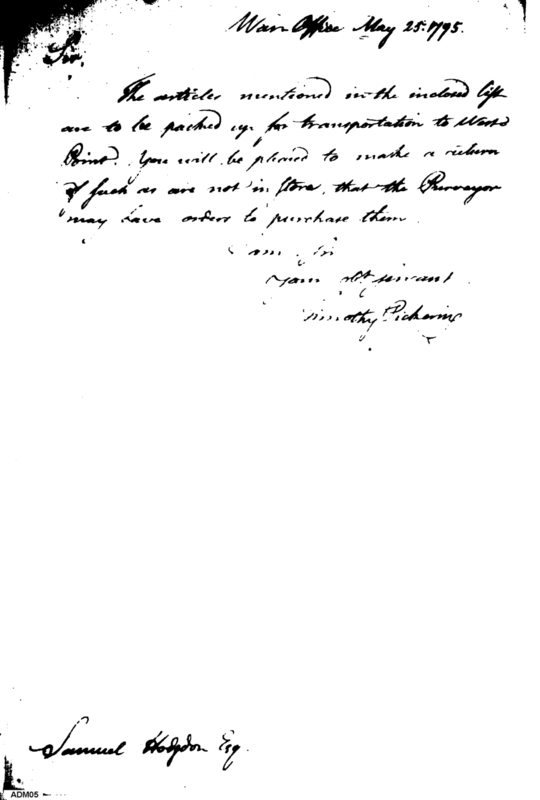 War Office May 25. 1795.
Sir,
The articles mentioned in the inclosed list
are to be packed up for transportation to West
Point. You will be pleased to make a return
of such as are not in store, that the Purveyor
may have orders to purchase them.
I am, Sir
Your obt servant
Timothy Pickering
Samuel Hodgdon Esq.
ADM05